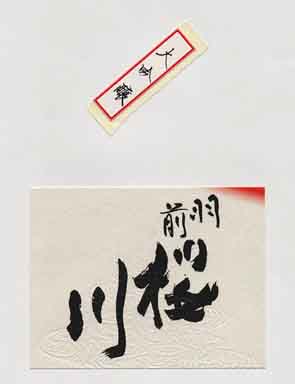 大吟醸
羽前
桜川